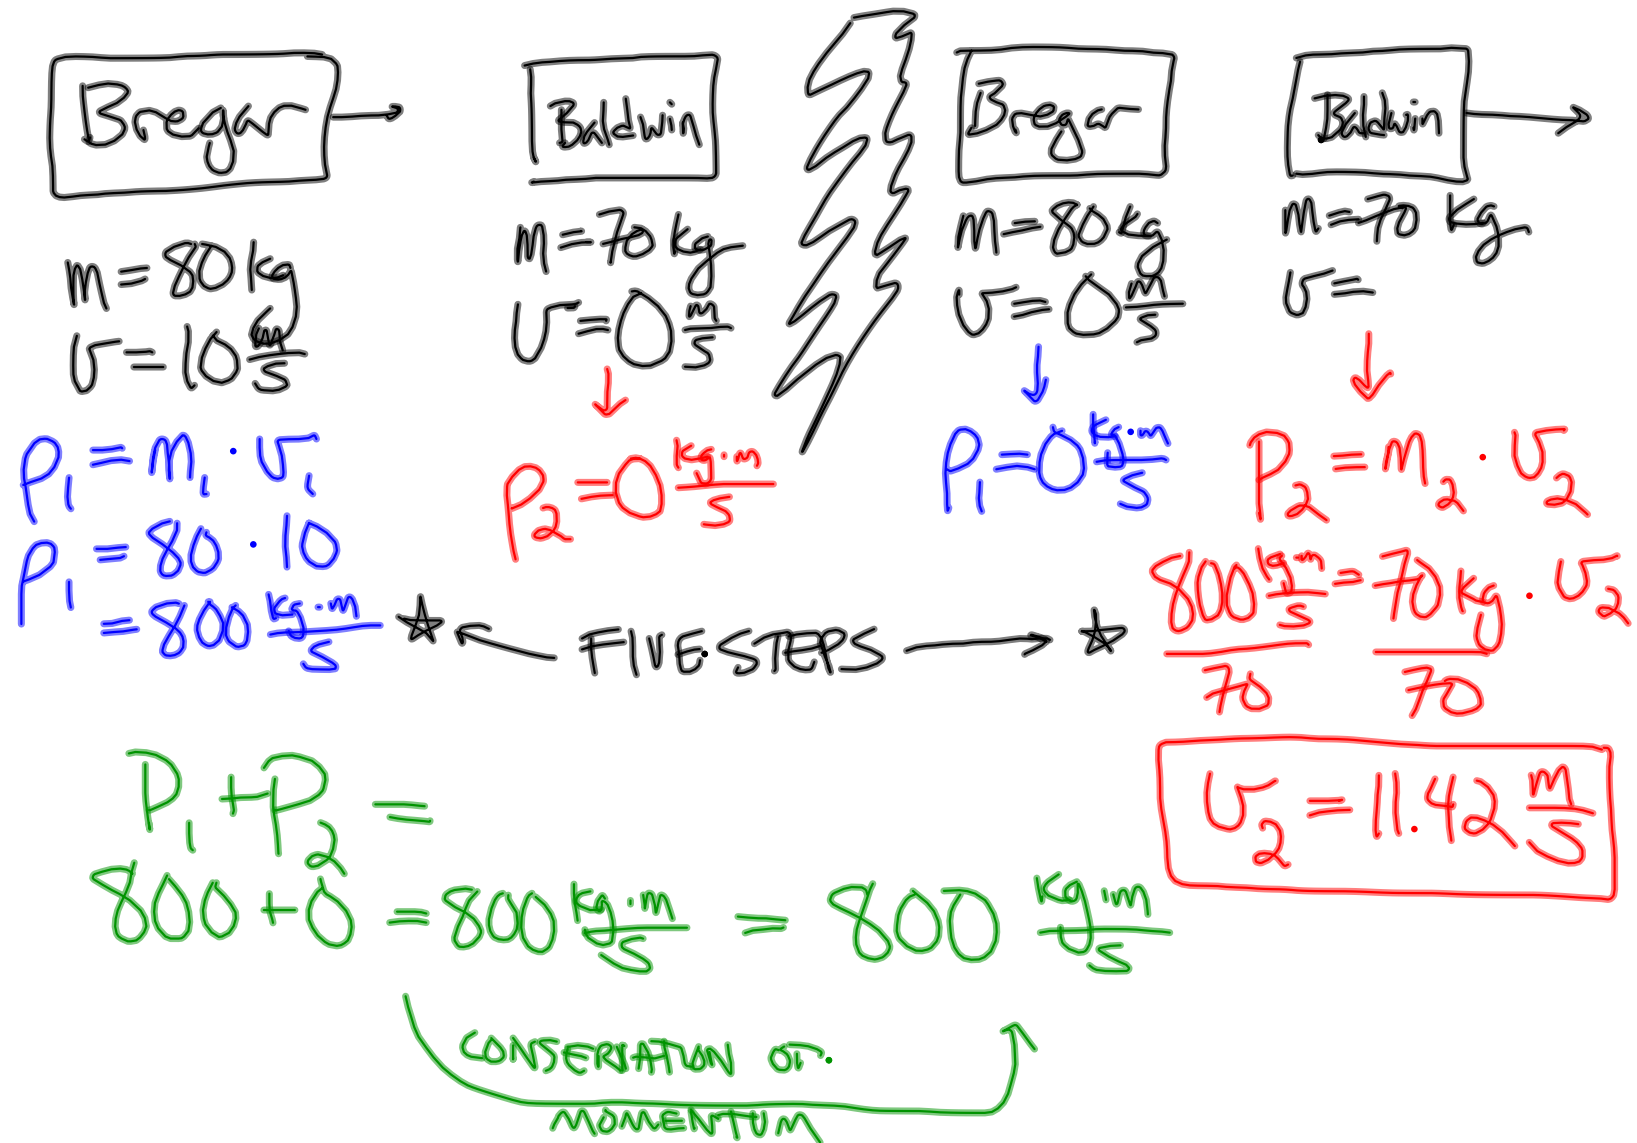 Bregar
m = 80 kg
v = 10 m/s
P₁ = m₁ · v₁
P₁ = 80 · 10
= 800 kg·m/s
Baldwin
m = 70 kg
v = 0 m/s
P₂ = 0 kg·m/s
Bregar
m = 80 kg
v = 0 m/s
P₁ = 0 kg·m/s
Baldwin
m = 70 kg
v =
P₂ = m₂ · v₂
800 kg·m/s = 70 kg · v₂
70 70
v₂ = 11.42 m/s
FIVE STEPS
P₁ + P₂ =
800 + 0 = 800 kg·m/s = 800 kg·m/s
CONSERVATION OF
MOMENTUM